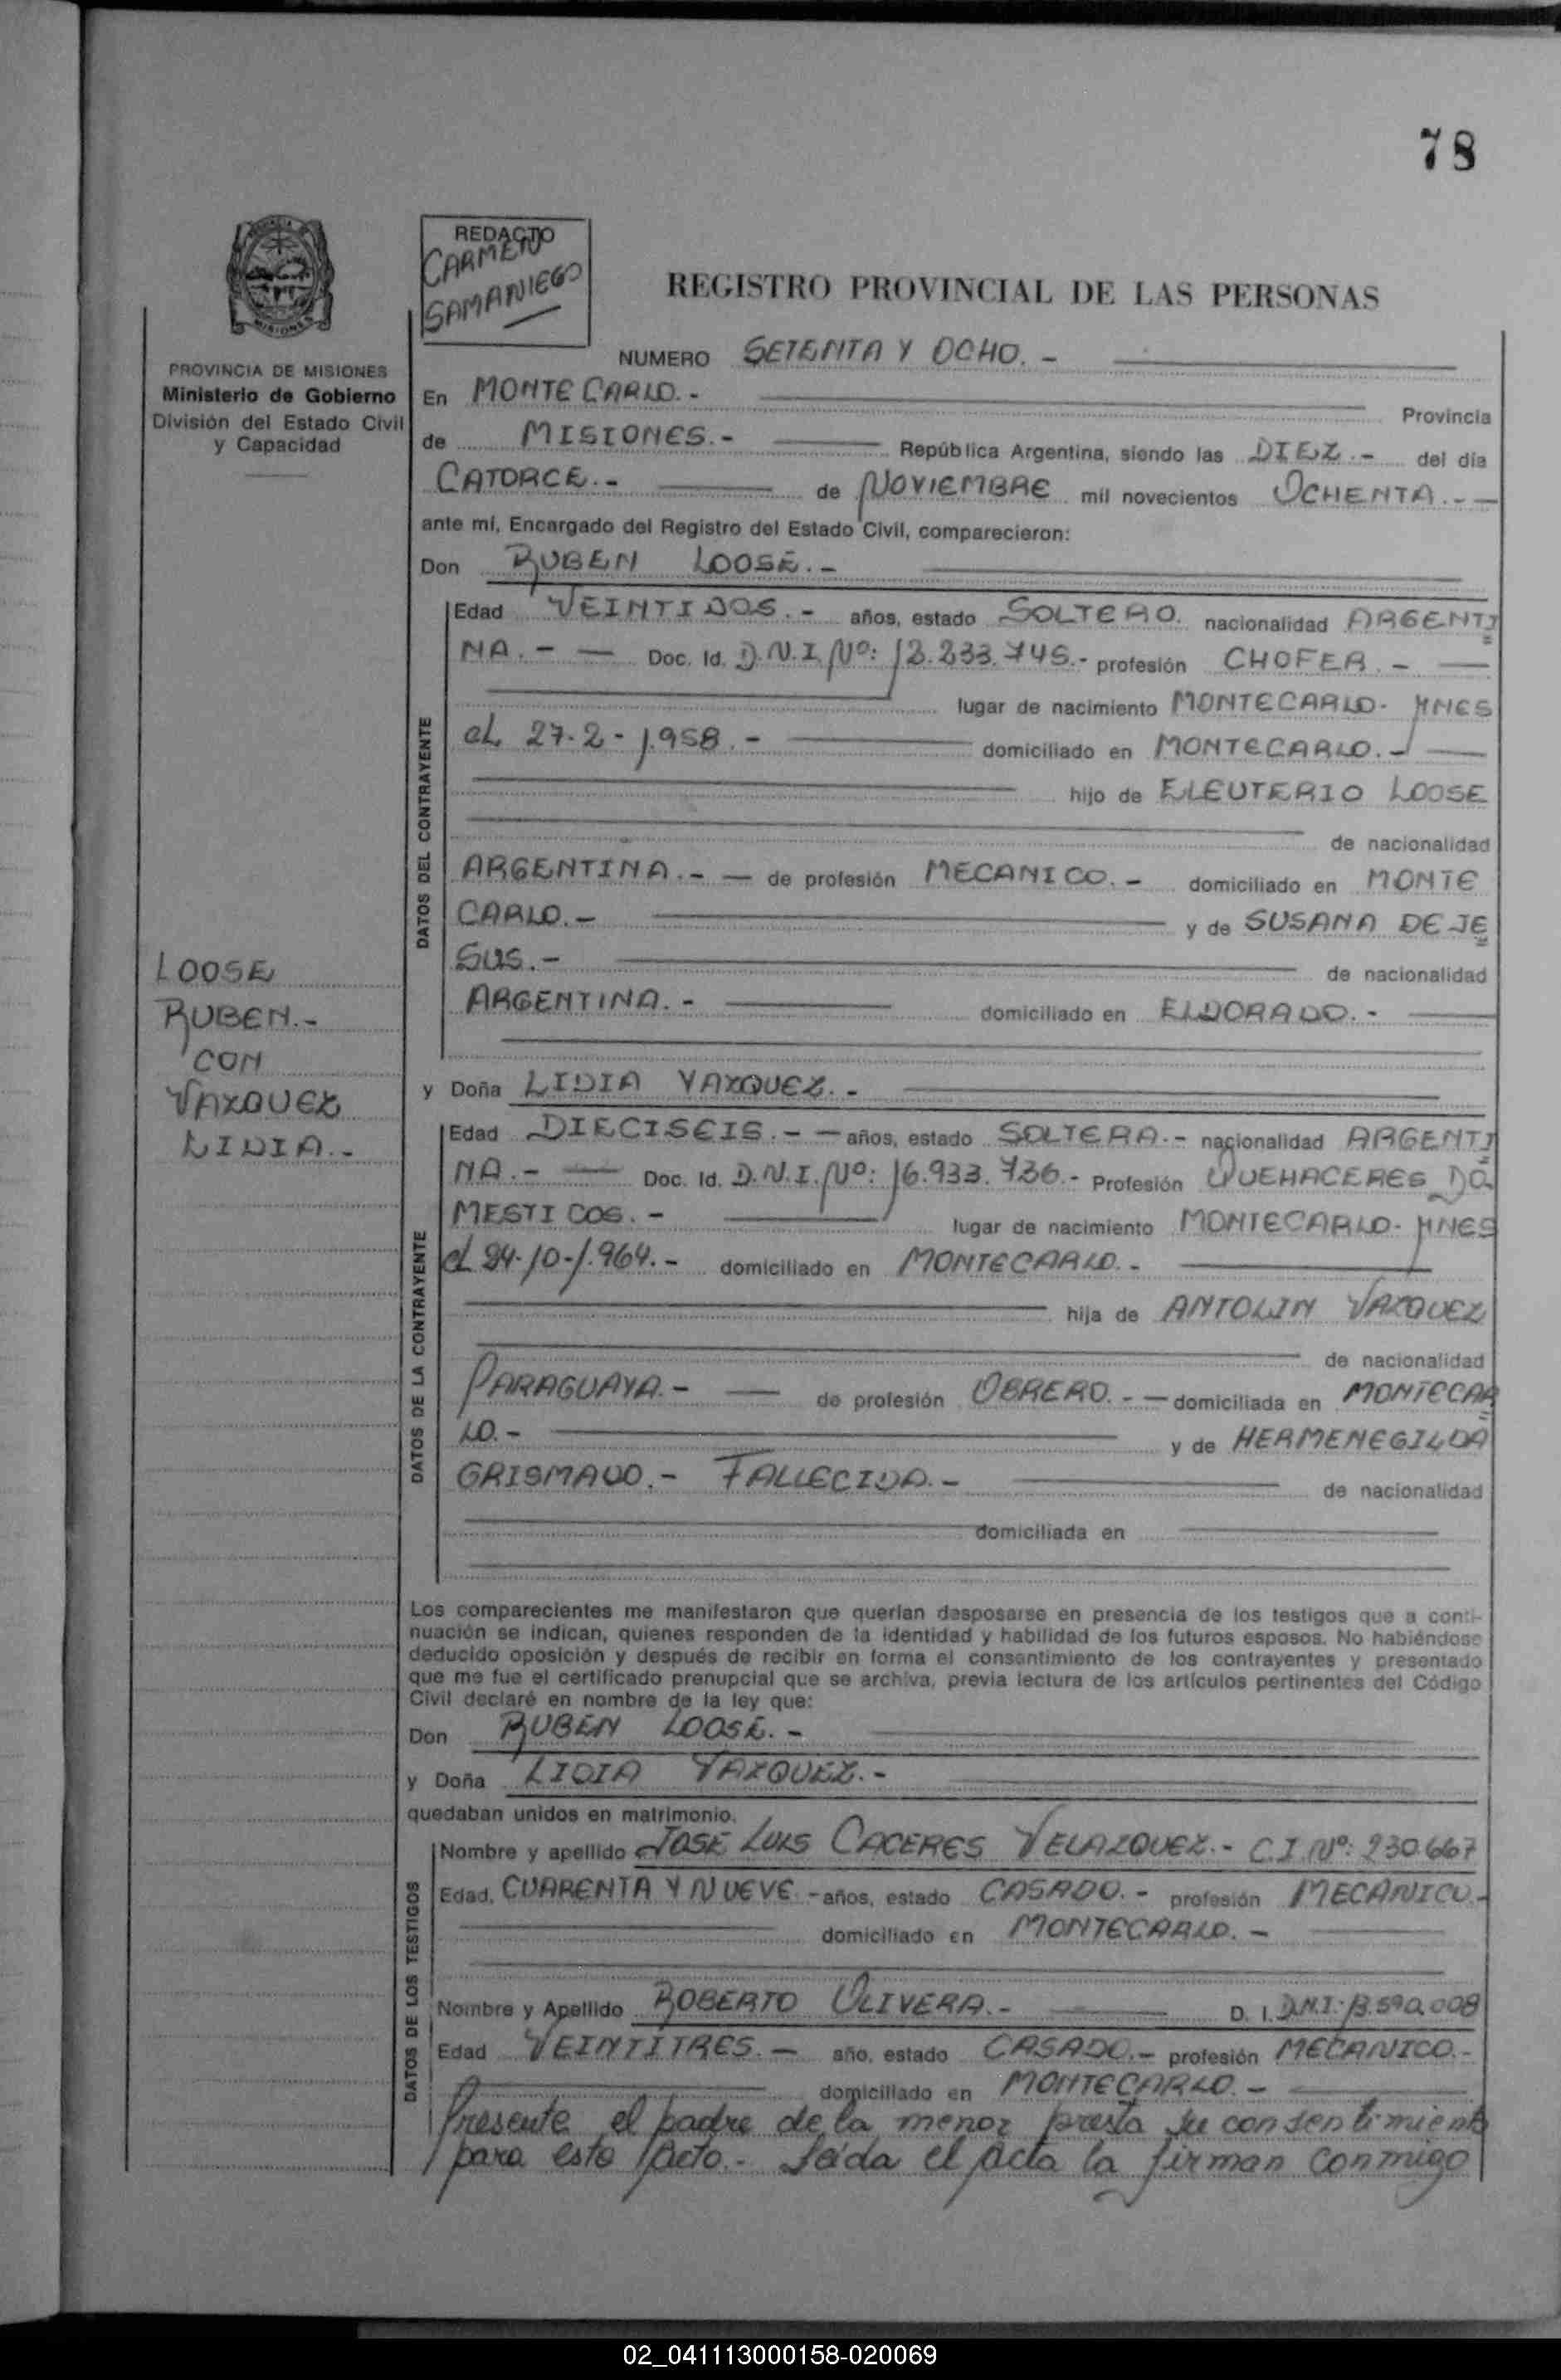 78
REDACTO
CARMEN
SAMANIEGO
REGISTRO PROVINCIAL DE LAS PERSONAS
PROVINCIA DE MISIONES
Ministerio de Gobierno
División del Estado Civil
y Capacidad
NUMERO SETENTA Y OCHO. -
En MONTE CARLO. - Provincia
de MISIONES. - República Argentina, siendo las DIEZ. - del día
CATORCE. - de NOVIEMBRE mil novecientos OCHENTA. - -
ante mí, Encargado del Registro del Estado Civil, comparecieron:
Don RUBEN LOOSE. -
DATOS DEL CONTRAYENTE
Edad VEINTIDOS. - años, estado SOLTERO. nacionalidad ARGENTI
NA. - - Doc. Id. D.N.I. Nº: 12.233.745.- profesión CHOFER. -
lugar de nacimiento MONTECARLO- MNES
el 27-2-1.958. - domiciliado en MONTECARLO. -
hijo de ELEUTERIO LOOSE
de nacionalidad
ARGENTINA. - - de profesión MECANICO. - domiciliado en MONTE
CARLO. - y de SUSANA DE JE
SUS. - de nacionalidad
ARGENTINA. - domiciliado en ELDORADO. -
LOOSE
RUBEN.-
CON
VAZQUEZ
LIDIA.-
y Doña LIDIA VAZQUEZ. -
DATOS DE LA CONTRAYENTE
Edad DIECISEIS. - - años, estado SOLTERA. - nacionalidad ARGENTI
NA. - - Doc. Id. D.N.I. Nº: 16.933.736.- Profesión QUEHACERES DO
MESTICOS. - lugar de nacimiento MONTECARLO- MNES
el 24-10-1.964. - domiciliado en MONTECARLO. -
hija de ANTOLIN VAZQUEZ
de nacionalidad
PARAGUAYA. - - de profesión OBRERO. - - domiciliada en MONTECAR
LO. - y de HERMENEGILDA
GRISMADO. - FALLECIDA. - de nacionalidad
domiciliada en
Los comparecientes me manifestaron que querían desposarse en presencia de los testigos que a conti-
nuación se indican, quienes responden de la identidad y habilidad de los futuros esposos. No habiéndose
deducido oposición y después de recibir en forma el consentimiento de los contrayentes y presentado
que me fue el certificado prenupcial que se archiva, previa lectura de los artículos pertinentes del Código
Civil declaré en nombre de la ley que:
Don RUBEN LOOSE. -
y Doña LIDIA VAZQUEZ. -
quedaban unidos en matrimonio.
DATOS DE LOS TESTIGOS
Nombre y apellido JOSE LUIS CACERES VELAZQUEZ.- C.I. Nº: 230.667
Edad, CUARENTA Y NUEVE. - años, estado CASADO. - profesión MECANICO.-
domiciliado en MONTECARLO. -
Nombre y Apellido ROBERTO OLIVERA. - D. I. D.N.I. 13.590.008
Edad VEINTITRES. - año, estado CASADO. - profesión MECANICO.-
domiciliado en MONTECARLO. -
Presente el padre de la menor presta su consentimiento
para este Acto.- Leida el Acta la firman conmigo
02_041113000158-020069